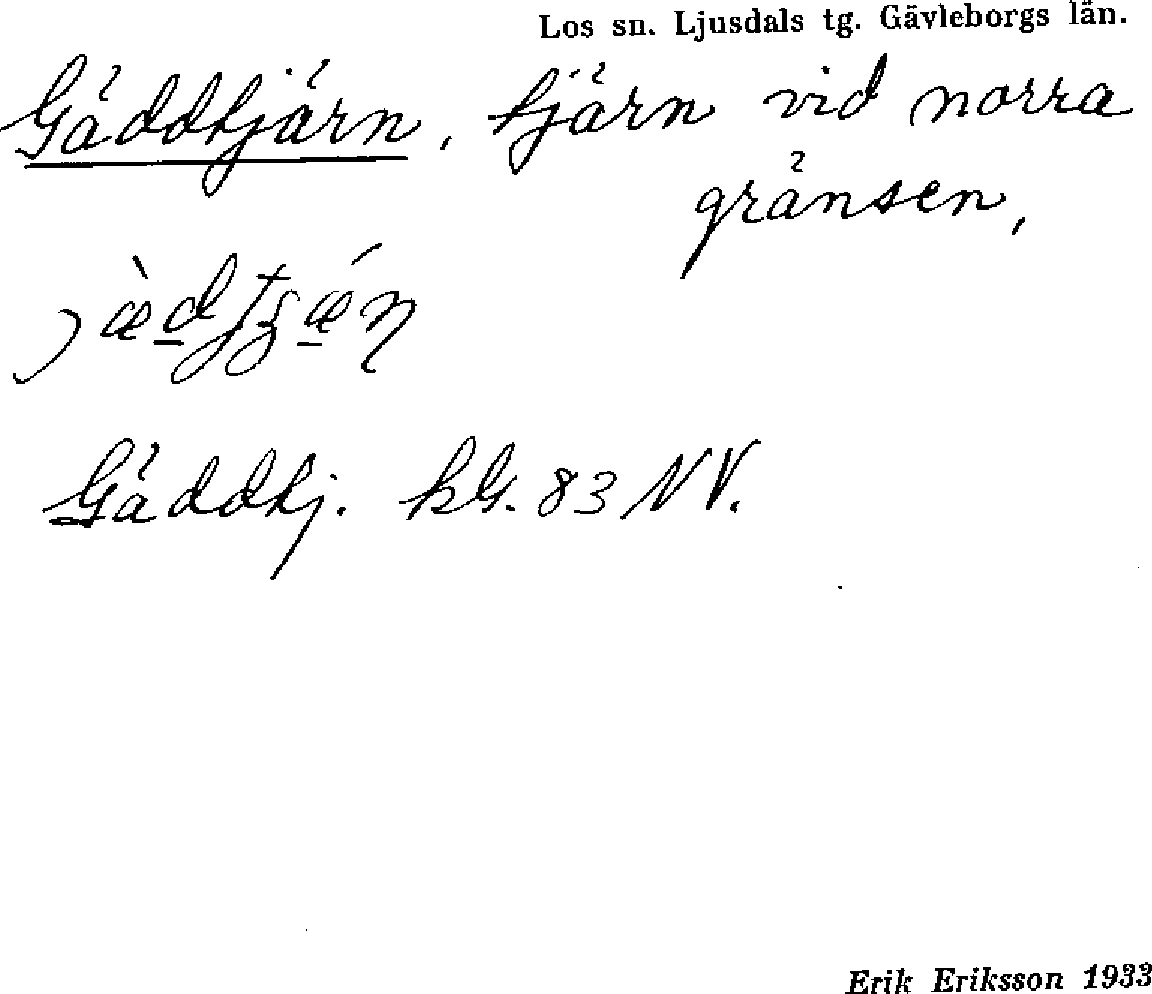 Los sn. Ljusdals tg. Gävleborgs län.
Gäddtjärn, tjärn vid norra
gränsen,
Gäddtj. kbl. 83 NV.
Erik Eriksson 1933